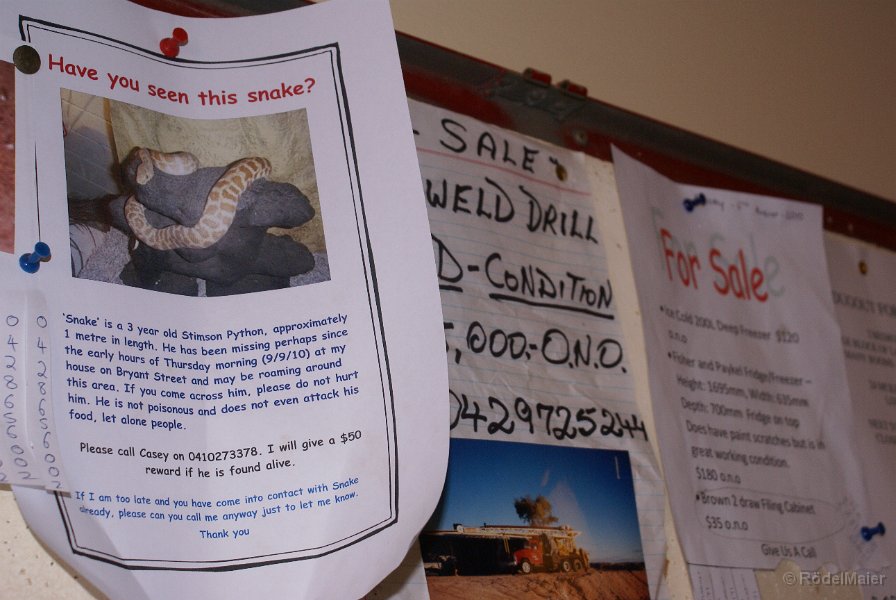 Have you seen this snake?
'Snake' is a 3 year old Stimson Python, approximately
1 metre in length. He has been missing perhaps since
the early hours of Thursday morning (9/9/10) at my
house on Bryant Street and may be roaming around
this area. If you come across him, please do not hurt
him. He is not poisonous and does not even attack his
food, let alone people.
Please call Casey on 0410273378. I will give a $50
reward if he is found alive.
If I am too late and you have come into contact with Snake
already, please can you call me anyway just to let me know.
Thank you
SALE
WELD DRILL
D-CONDITION
5,000,-O.N.O.
0429725244
For Sale
•Ice Cold 200L Deep Freezer $120
o.n.o
•Fisher and Paykel Fridge/Freezer –
Height: 1695mm, Width: 635mm
Depth: 700mm Fridge on top
Does have paint scratches but is in
great working condition.
$180 o.n.o
•Brown 2 draw Filing Cabinet
$35 o.n.o
Give Us A Call
© RödelMaier